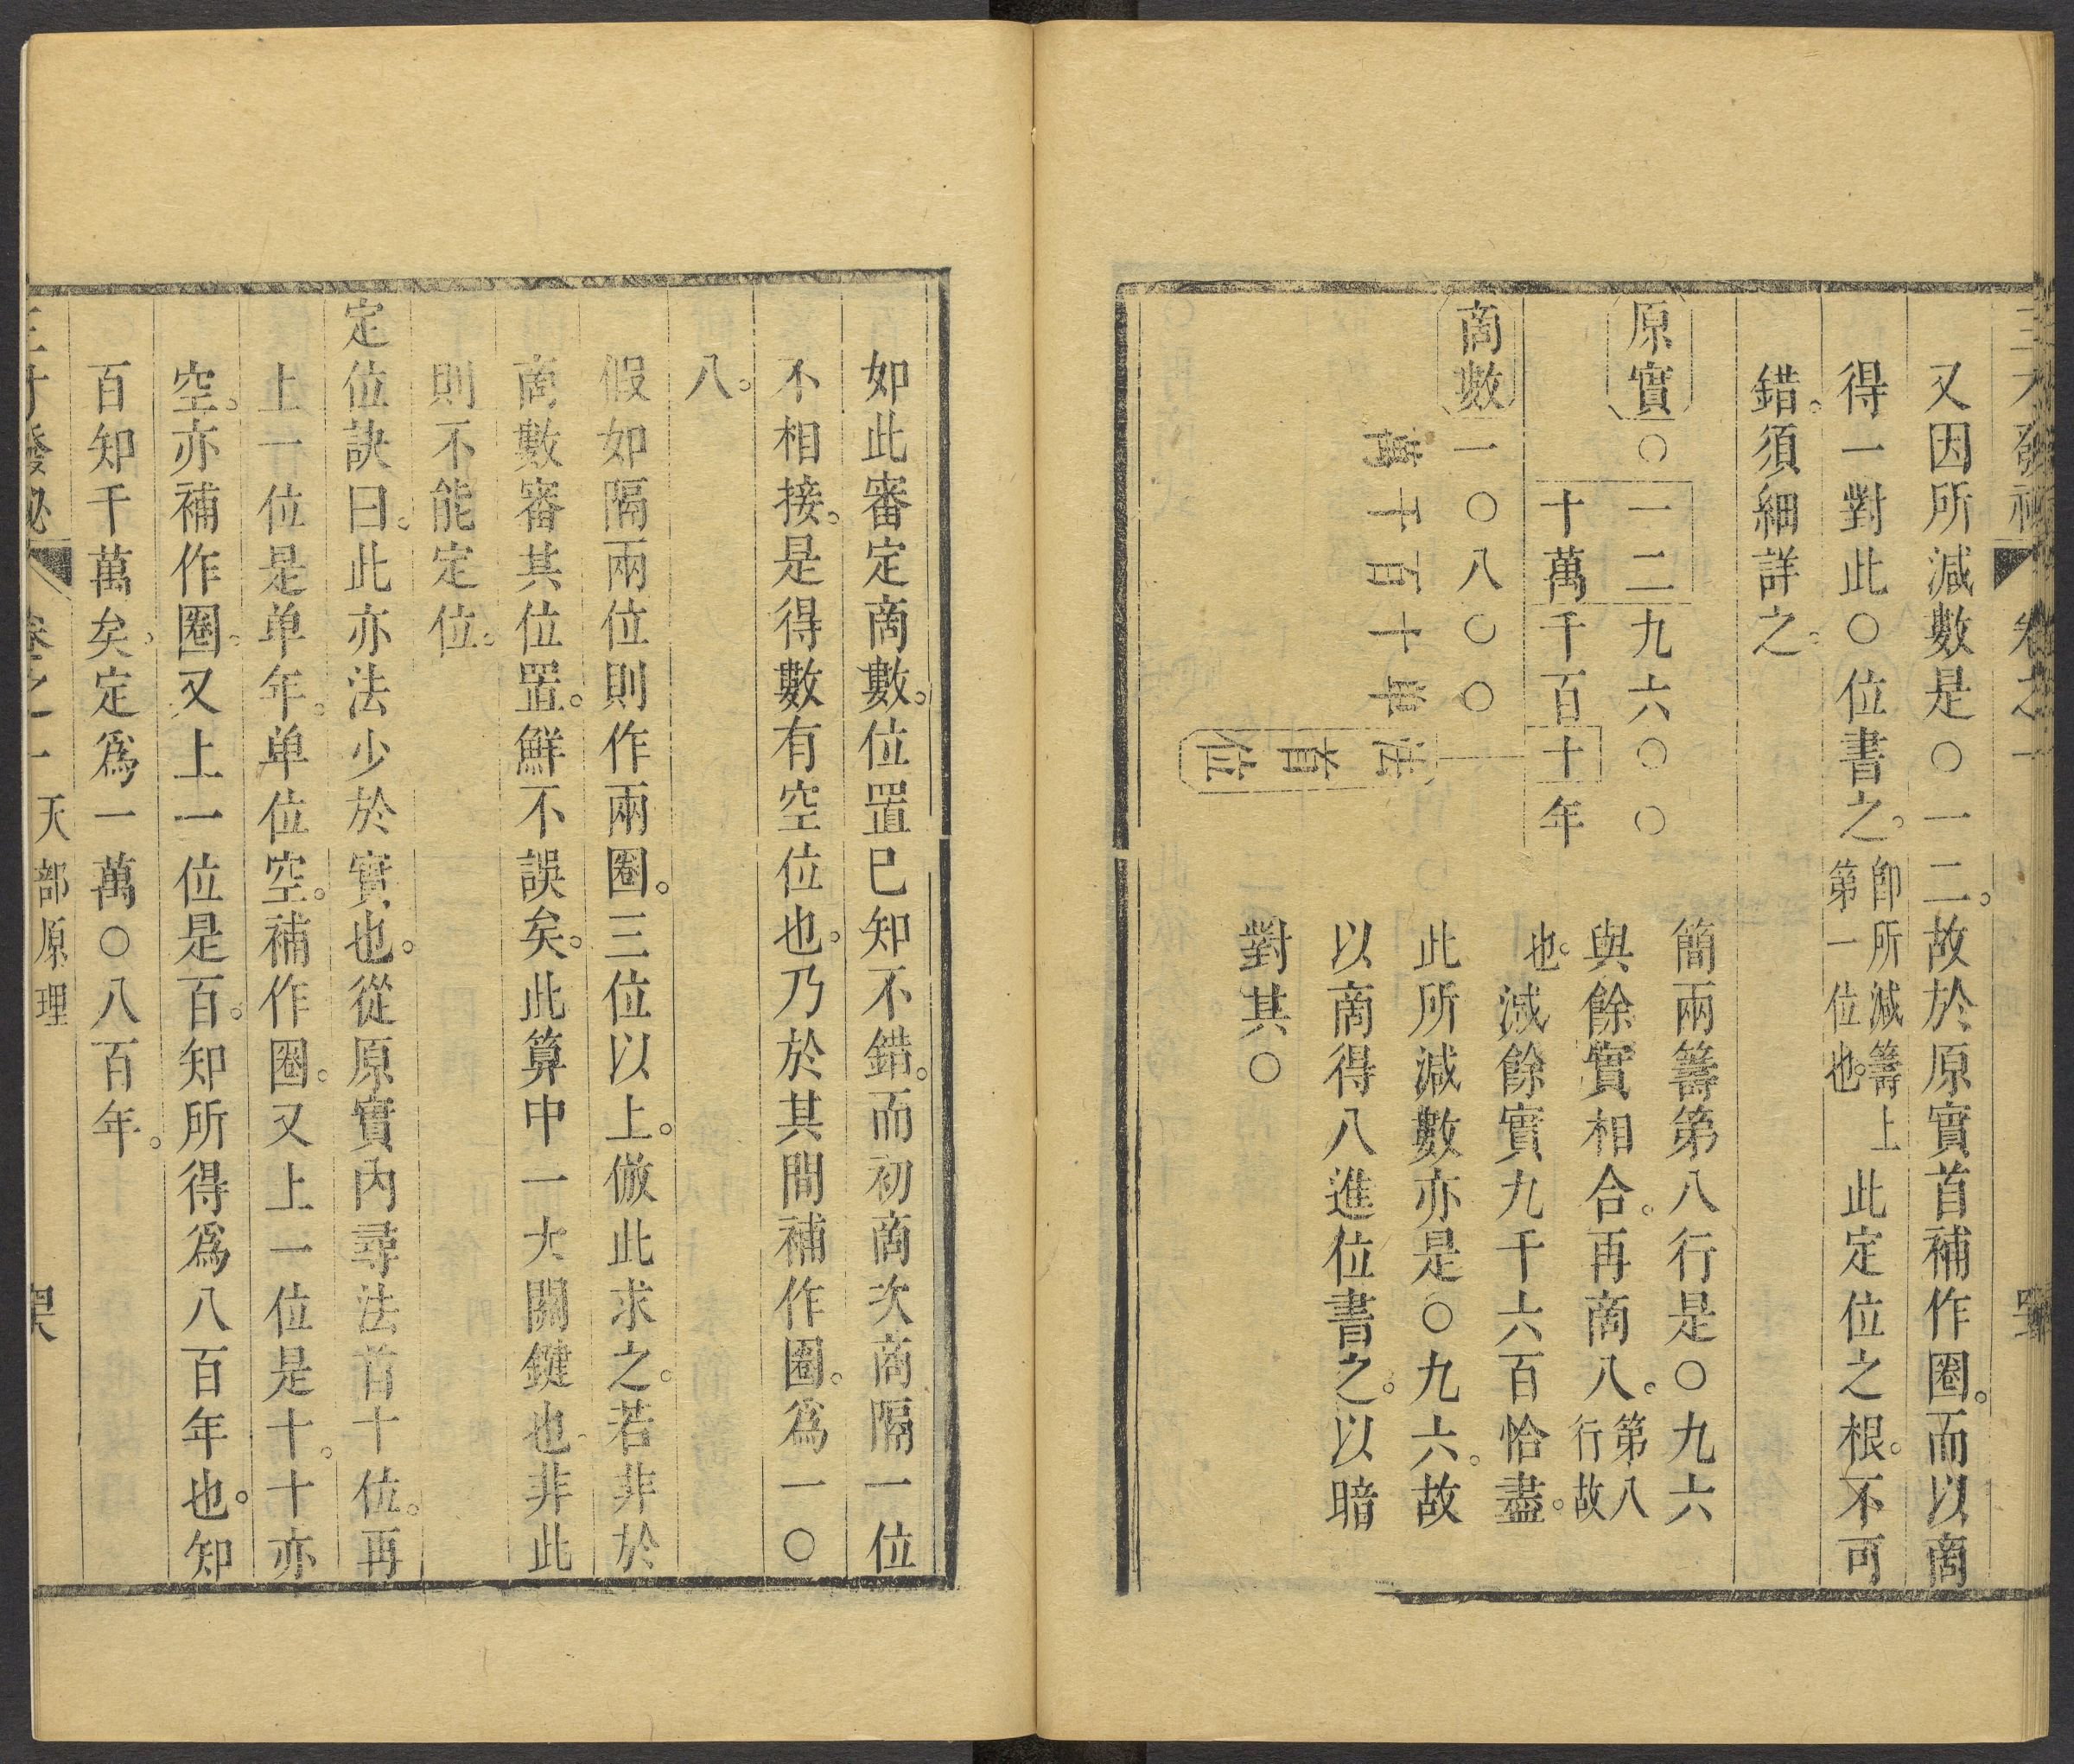 三才發祕 卷之一
又因所減數是○一二。故於原實首補作圈。而以商
得一對此○位書之。即所減籌上第一位也。此定位之根。不可
錯。須細詳之。
原實○一二九六○○
十萬千百十年
商數一○八○○
萬千百十单
法首位
簡兩籌第八行是○九六
與餘實相合。再商八。第八行故
也。減餘實九千六百恰盡。
此所減數亦是○九六。故
以商得八進位書之。以暗
對其○
如此審定商數。位置已知不錯。而初商次商隔一位
不相接。是得數有空位也。乃於其間補作圈。爲一○
八。
假如隔兩位則作兩圈。三位以上。倣此求之。若非於
商數審其位置。鮮不誤矣。此算中一大關鍵也。非此
則不能定位。
定位訣曰。此亦法少於實也。從原實內尋法首十位。再
上一位是单年。单位空。補作圈。又上一位是十。十亦
空。亦補作圈。又上一位是百。知所得爲八百年也。知
百知千萬矣。定爲一萬○八百年。
三才發祕 卷之一 天部原理